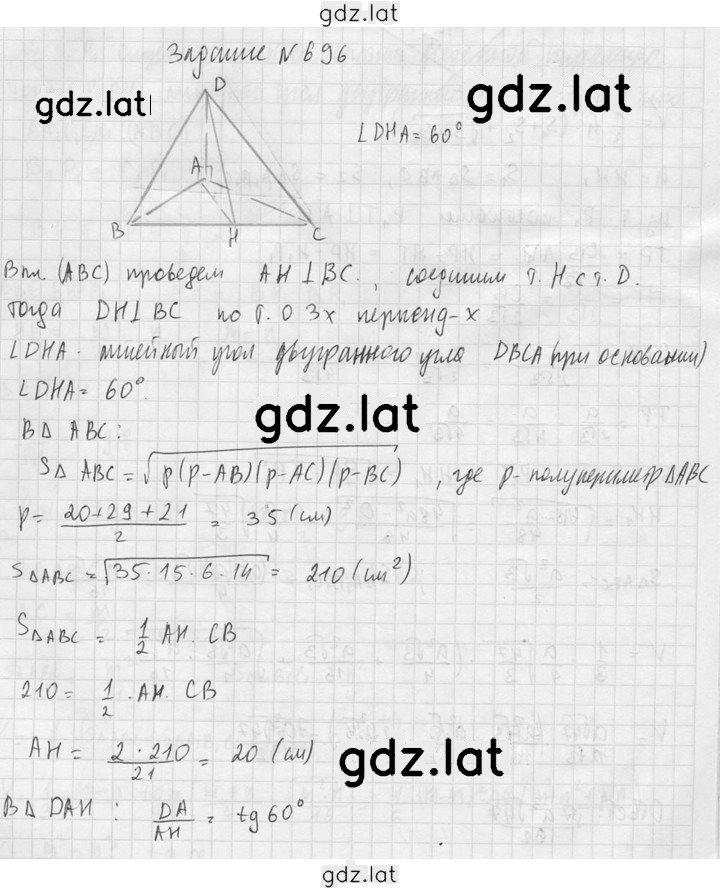 gdz.lat
Задание №696
gdz.lat
gdz.lat
D
∠DHA = 60°
A
B
H
C
В пл (ABC) проведем AH⊥BC, соединим т. H с т. D.
тогда DH⊥BC по т. о 3х перпенд-х
∠DHA - линейный угол двугранного угла DBCA (при основании)
∠DHA = 60°.
gdz.lat
В Δ ABC:
SΔ ABC = √(p(p-AB)(p-AC)(p-BC)), где p-полупериметр ΔABC
p = (20+29+21)/2 = 35 (см)
SΔABC = √(35·15·6·14) = 210 (см²)
SΔABC = 1/2 AH · CB
210 = 1/2 · AH · CB
AH = (2·210)/21 = 20 (см)
gdz.lat
В Δ DAH : DA/AH = tg 60°
gdz.lat